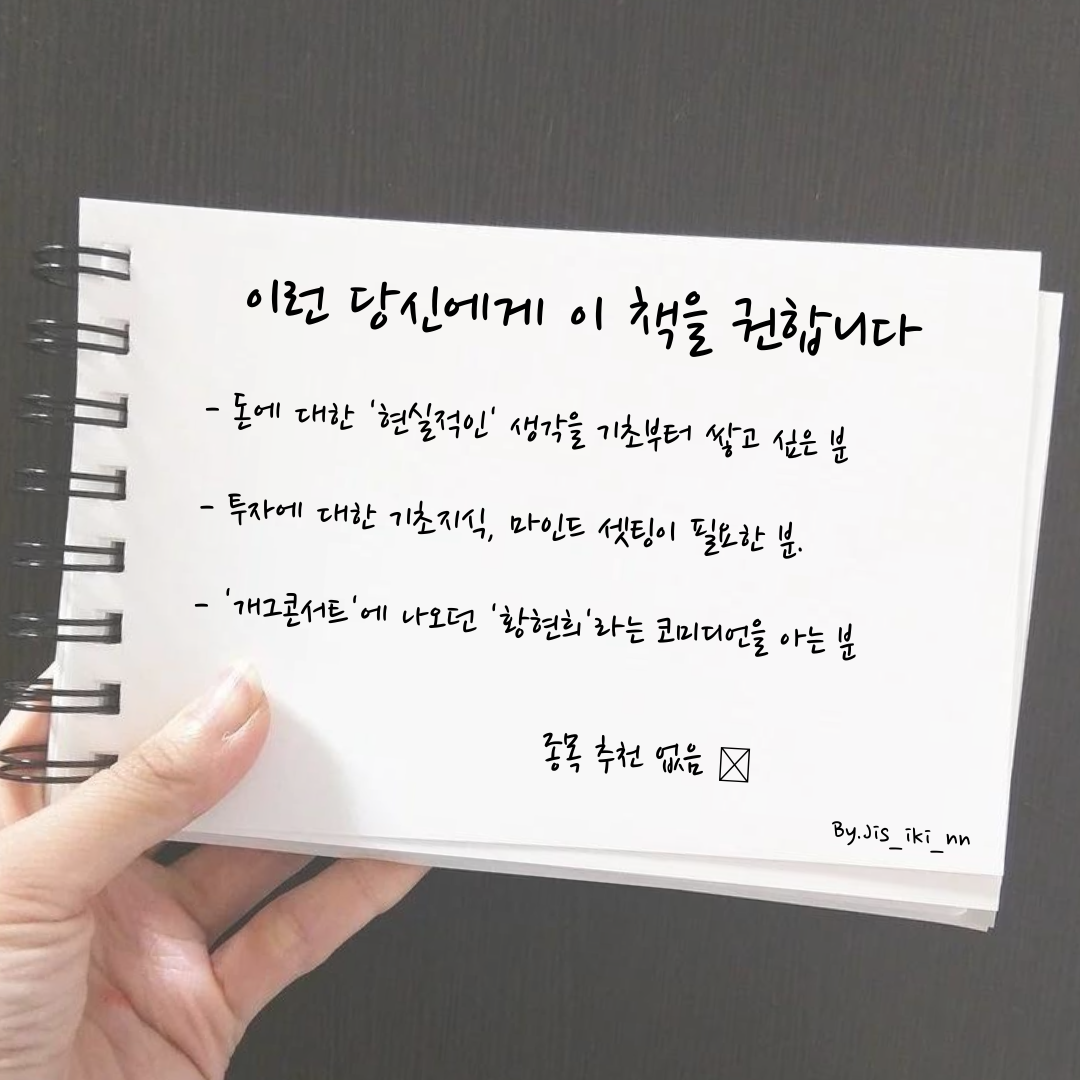 이런 당신에게 이 책을 권합니다
- 돈에 대한 '현실적인' 생각을 기초부터 쌓고 싶은 분
- 투자에 대한 기초지식, 마인드 셋팅이 필요한 분.
- '개그콘서트'에 나오던 '황현희'라는 코미디언을 아는 분
종목 추천 없음
By.Jis_iki_nn